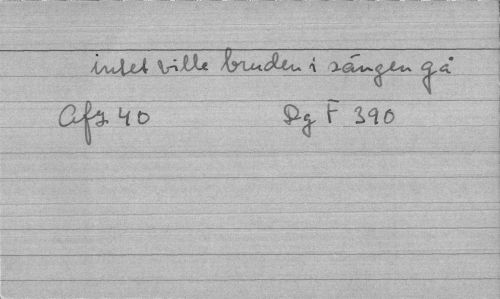 intet ville bruden i sängen gå
Afz 40 Dg F 390